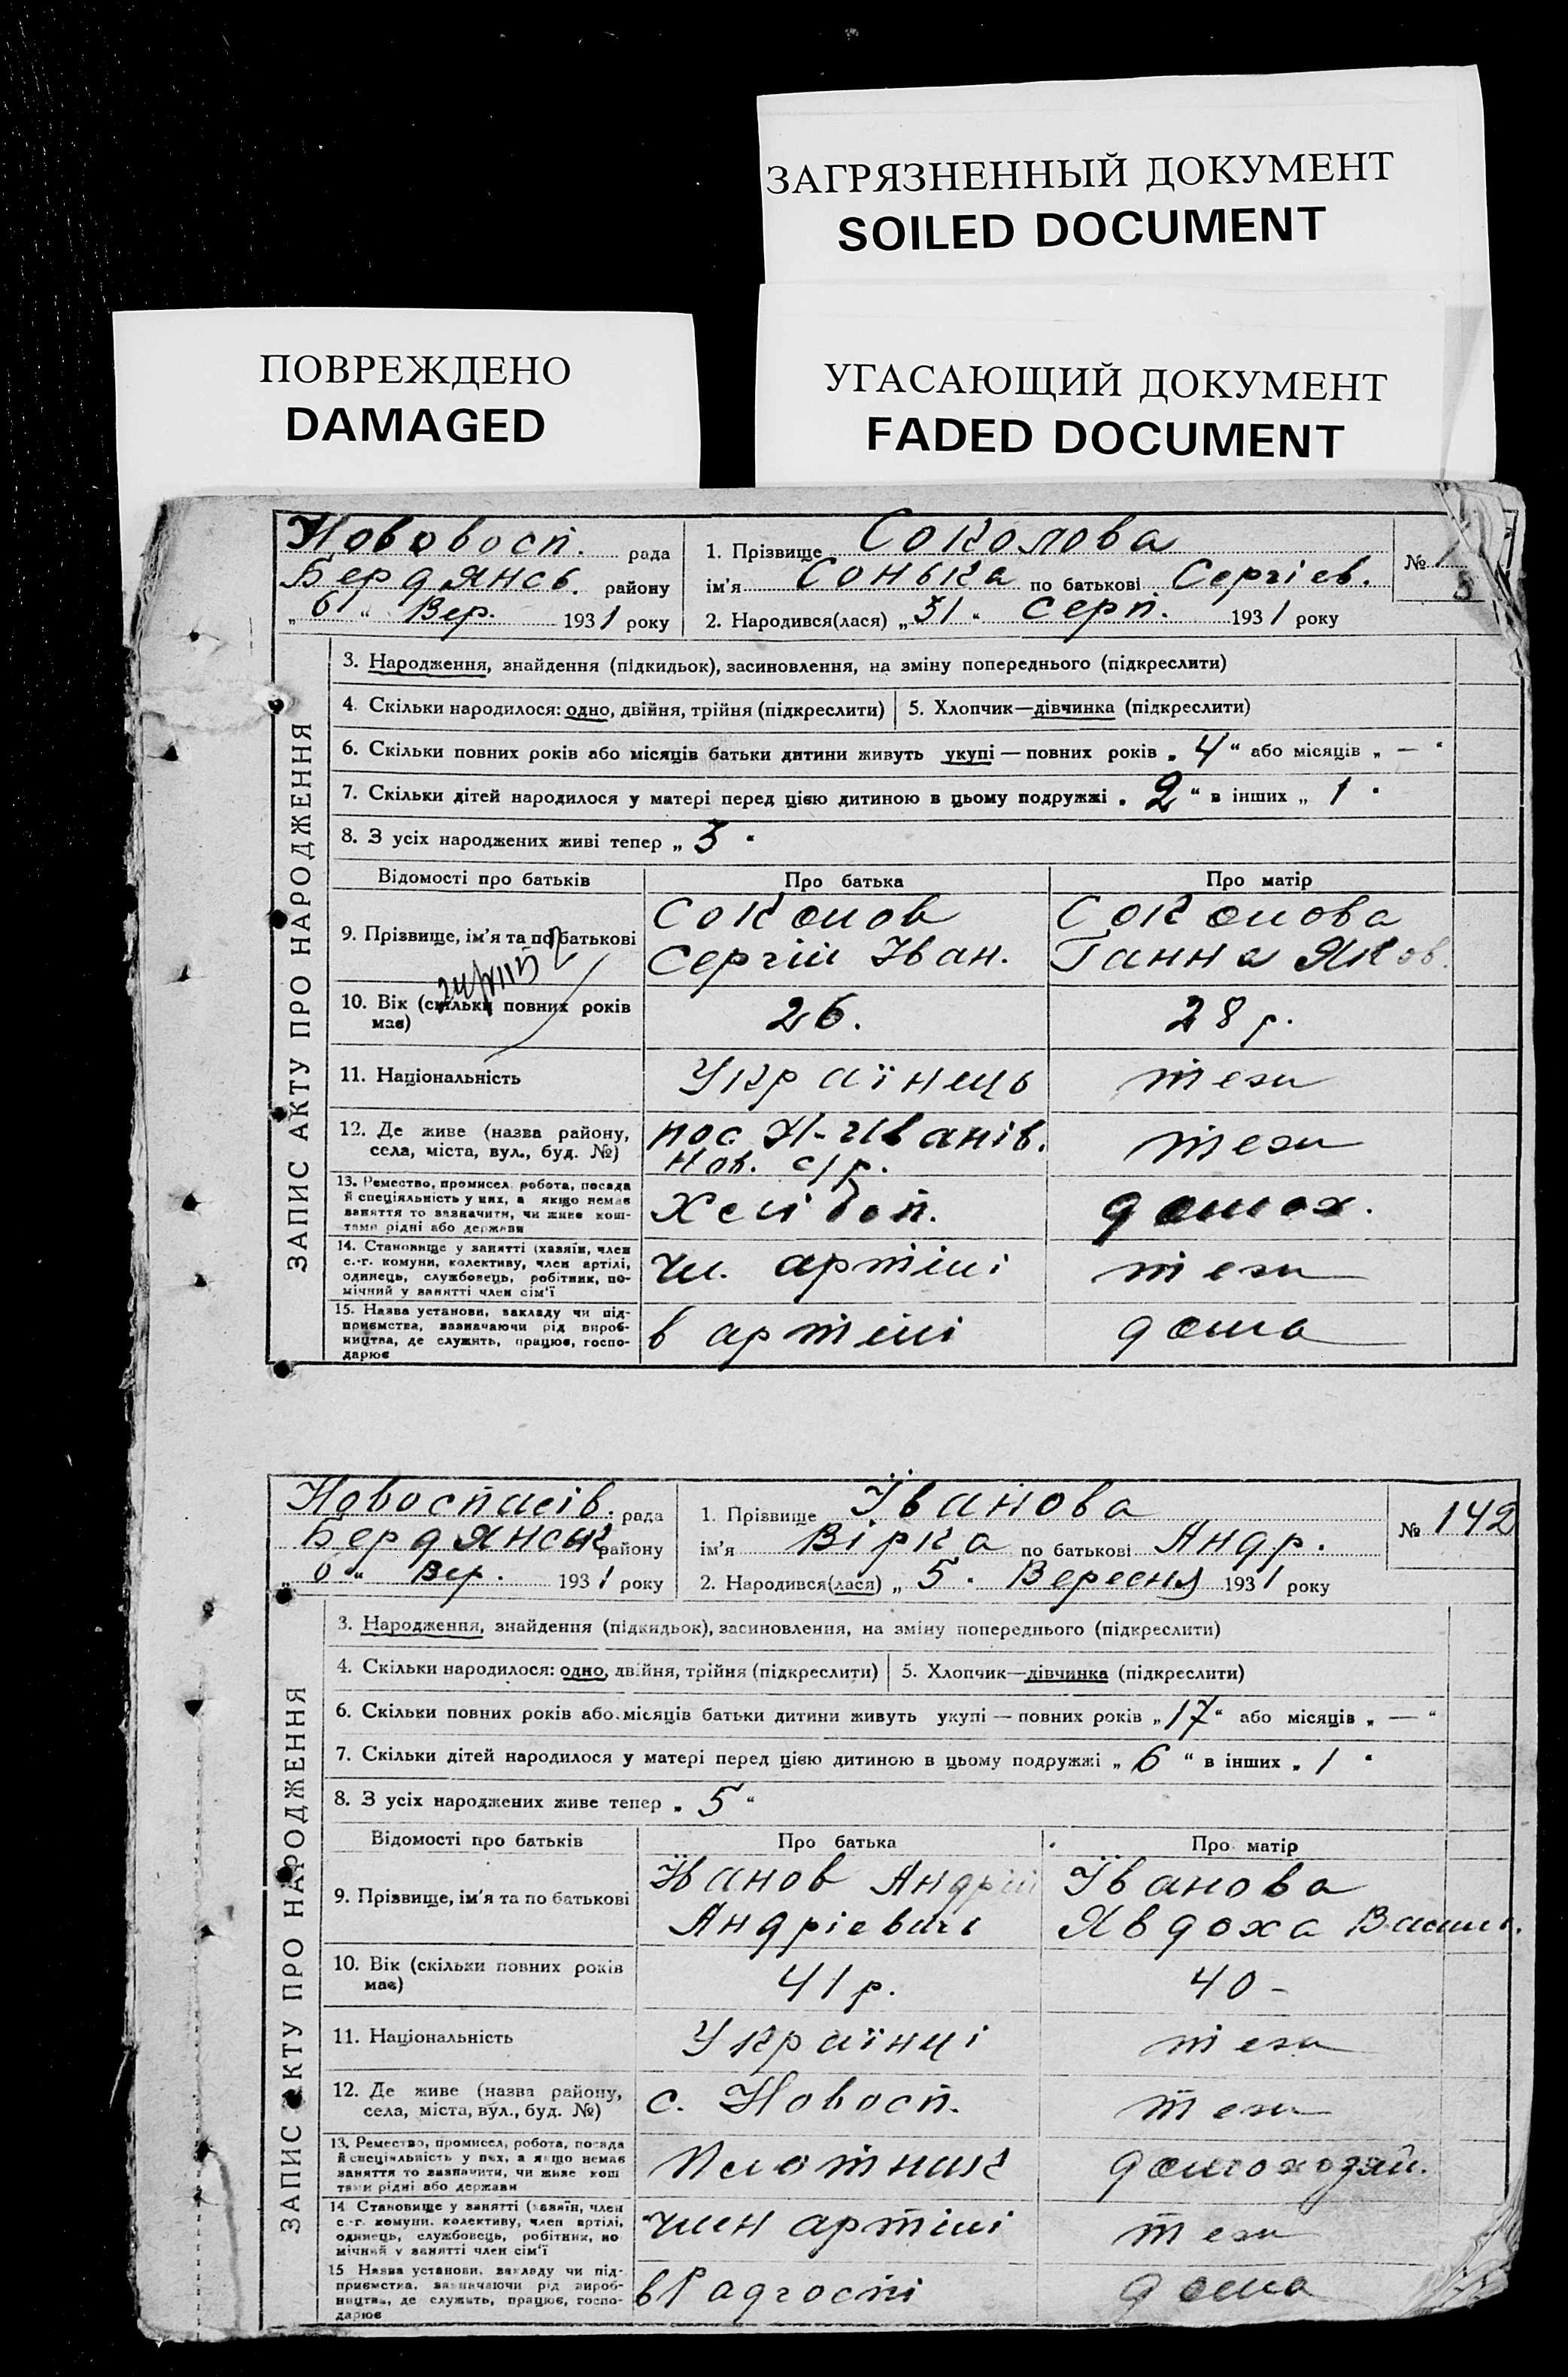 ЗАГРЯЗНЕННЫЙ ДОКУМЕНТ
SOILED DOCUMENT
ПОВРЕЖДЕНО
DAMAGED
УГАСАЮЩИЙ ДОКУМЕНТ
FADED DOCUMENT
Нововосп. рада
Бердянсь. району
„6“ Вер. 1931 року
1. Прізвище Соколова
ім'я Сонька по батькові Сергіев.
2. Народився(лася) „31“ Серп. 1931 року
№
ЗАПИС АКТУ ПРО НАРОДЖЕННЯ
3. Народження, знайдення (підкидьок), засиновлення, на зміну попереднього (підкреслити)
4. Скільки народилося: одно, двійня, трійня (підкреслити) 5. Хлопчик—дівчинка (підкреслити)
6. Скільки повних років або місяців батьки дитини живуть укупі — повних років „4“ або місяців „—“
7. Скільки дітей народилося у матері перед цією дитиною в цьому подружжі „2“ в інших „1“
8. З усіх народжених живі тепер „3“
Відомості про батьків Про батька Про матір
9. Прізвище, ім'я та по батькові
Соколов
Сергій Іван.
Соколова
Ганна Яков.
10. Вік (скільки повних років має)
26.
28 р.
11. Національність Українець теж
12. Де живе (назва району,
села, міста, вул., буд. №)
пос Н-Иванів.
Нов. с/р.
теж
13. Ремество, промисел, робота, посада
й спеціяльність у них, а якщо немає
заняття то зазначити, чи живе кош-
тами рідні або держави
Хлібоп.
домох.
14. Становище у занятті (хазяїн, член
с.-г. комуни, колективу, член артілі,
одинець, службовець, робітник, по-
мічний у занятті член сім'ї
чл. артілі
теж
15. Назва установи, закладу чи під-
приємства, зазначаючи рід вироб-
ництва, де служить, працює, госпо-
дарює
в артілі
дома
Новоспасів. рада
Бердянськ району
„6“ Вер. 1931 року
1. Прізвище Їванова
ім'я Вірка по батькові Андр.
2. Народився(лася) „5“ Вересня 1931 року
№ 142
ЗАПИС АКТУ ПРО НАРОДЖЕННЯ
3. Народження, знайдення (підкидьок), засиновлення, на зміну попереднього (підкреслити)
4. Скільки народилося: одно, двійня, трійня (підкреслити) 5. Хлопчик—дівчинка (підкреслити)
6. Скільки повних років або місяців батьки дитини живуть укупі — повних років „17“ або місяців „—“
7. Скільки дітей народилося у матері перед цією дитиною в цьому подружжі „6“ в інших „1“
8. З усіх народжених живе тепер „5“
Відомості про батьків Про батька Про матір
9. Прізвище, ім'я та по батькові
Їванов Андрій
Андріевичь
Їванова
Явдоха Васил.
10. Вік (скільки повних років має)
41 р.
40 -
11. Національність Українці теж
12. Де живе (назва району,
села, міста, вул., буд. №)
с. Новосп.
теж
13. Ремество, промисел, робота, посада
й спеціяльність у них, а якщо немає
заняття то зазначити, чи живе кош
тами рідні або держави
Плотник
домоходзяй.
14 Становище у занятті (хазяїн, член
с.-г. комуни, колективу, член артілі,
одинець, службовець, робітник, по
мічний у занятті член сім'ї
член артілі
теж
15 Назва установи, закладу чи під-
приємства, зазначаючи рід вироб-
ництва, де служить, працює, госпо-
дарює
в Радгоспі
дома